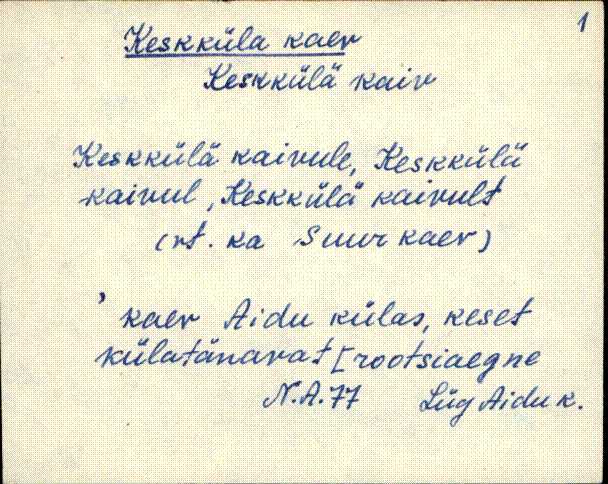 1
Keskküla kaev
Keskkülä kaiv
Keskkülä kaivule, Keskkülä
kaivul, Keskkülä kaivult
(vt. ka Suur kaev)
, kaev Aidu külas, keset
külatänavat [rootsiaegne
N.A. 77 Lüg Aidu k.